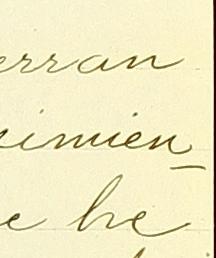 erran
imien
e he